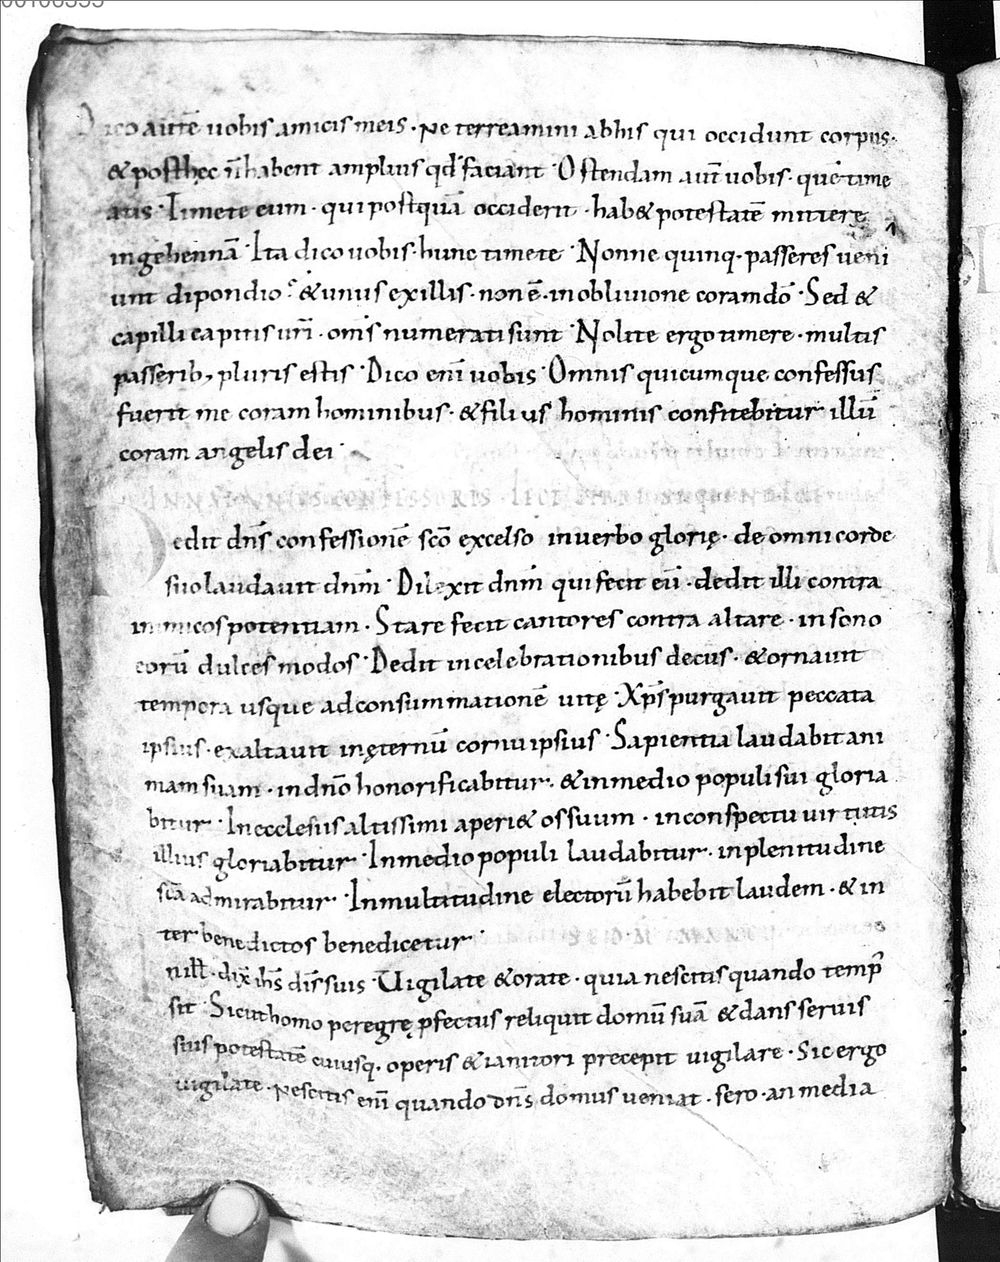 Dico autē uobis amicis meis · Ne terreamini ab his qui occidunt corpus ·
& posthec n̄ habent amplius qđ faciant · Ostendam aut̄ uobis · quē time
atis · Timete eum · qui postquā occiderit · hab& potestatē mittere
in gehennā · Ita dico uobis · hunc timete · Nonne quinq· passeres ueni
unt dipondio · & unus ex illis · non ē in obliuione coram dō · Sed &
capilli capitis ur̄i · om̄s numerati sunt · Nolite ergo timere · multis
passerib; pluris estis · Dico eni̅ uobis · Omnis quicumque confessus
fuerit me coram hominibus · & filius hominis confitebitur illū
coram angelis dei ·
CONFESSORIS · LECT
Dedit dn̄s confessionē scō excelso in uerbo glorię · de omni corde
suo laudauit dnm̄ · Dilexit dnm̄ qui fecit eū · dedit illi contra
inimicos potentiam · Stare fecit cantores contra altare · in sono
eorū dulces modos · Dedit in celebrationibus decus · & ornauit
tempora usque ad consummationē uitę · Xp̄s purgauit peccata
ipsius · exaltauit in ęternū cornu ipsius · Sapientia laudabit ani
mam suam · in dn̄o honorificabitur · & in medio populi sui gloria
bitur · In ecclesiis altissimi aperi& os suum · in conspectu uirtutis
illius gloriabitur · In medio populi laudabitur · in plenitudine
sc̄a admirabitur · In multitudine electorū habebit laudem · & in
ter benedictos benedicetur ·
dix̄ ih̄s dis̄ suis Uigilate & orate · quia nescitis quando temp̄
sit · Sicut homo peregrę ꝓfectus reliquit domū suā & dans seruis
suis potestatē cuiusq· operis & ianitori precepit uigilare · Sic ergo
uigilate · Nescitis eni̅ quando dn̄s domus ueniat · sero · an media